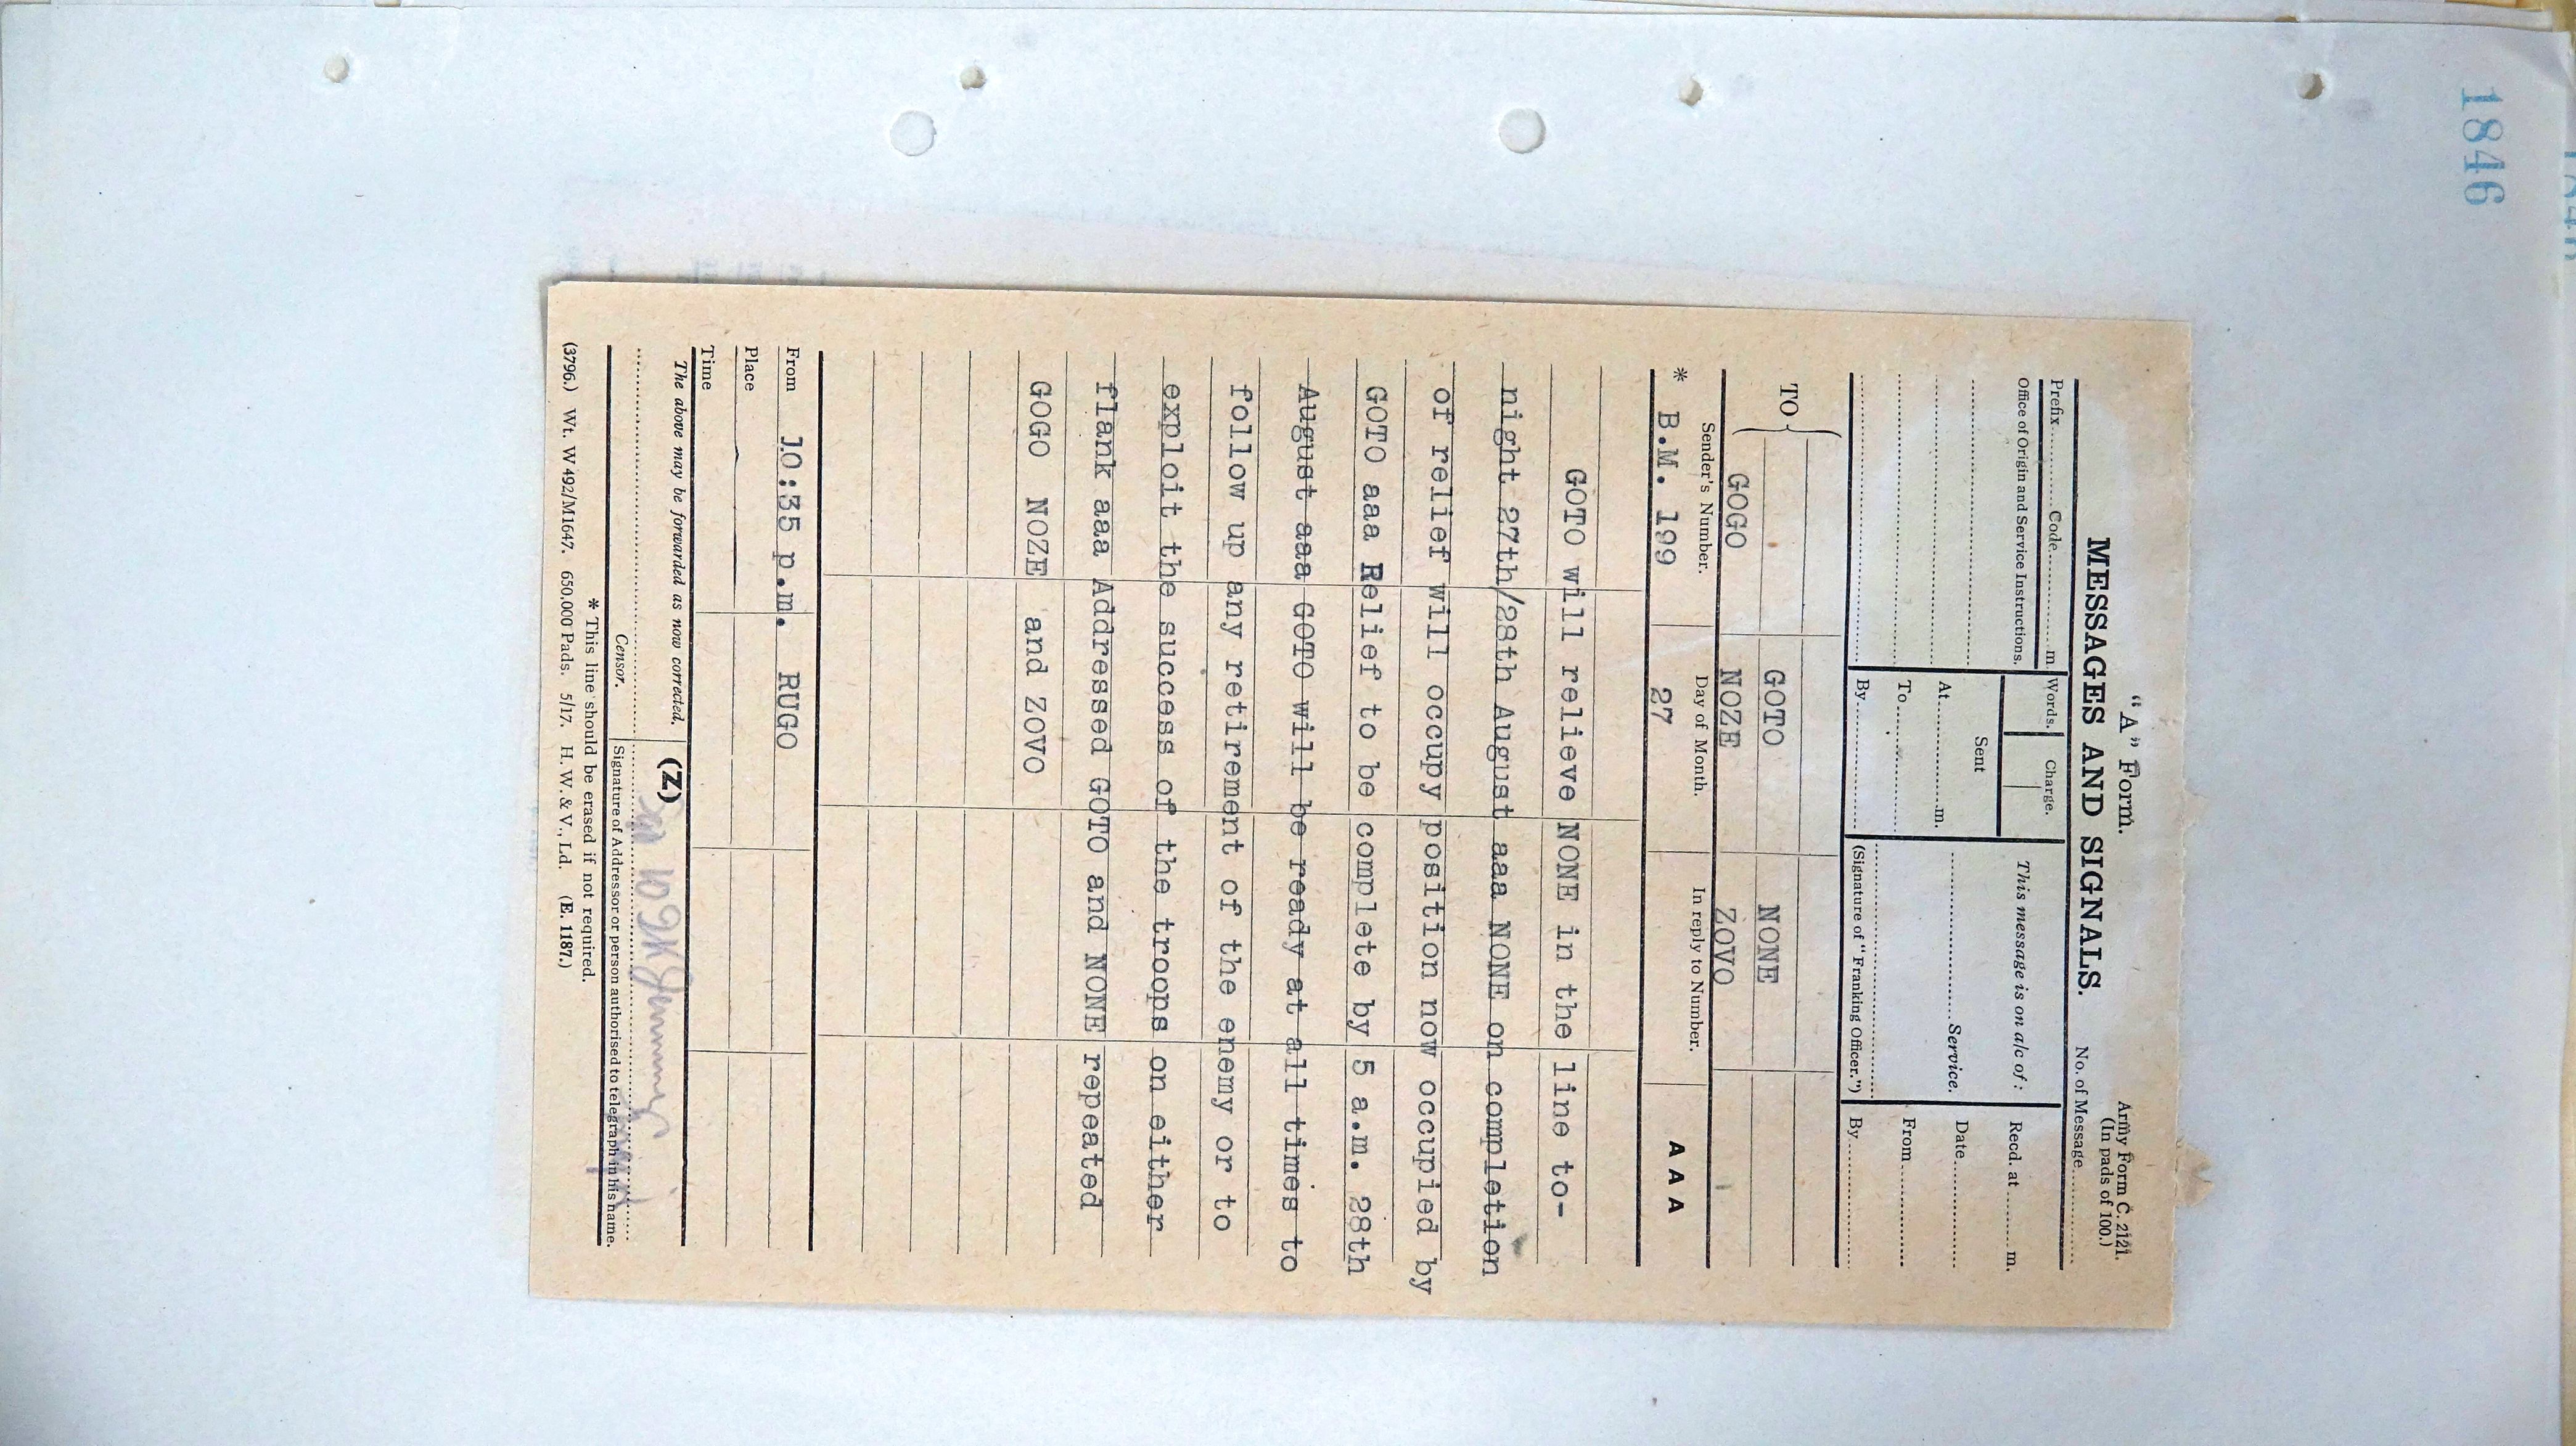 1846
"A" Form.
Army Form C. 2121.
(In pads of 100.)
MESSAGES AND SIGNALS.
No. of Message
Prefix Code m.
Words.
Charge.
This message is on a/c of :
Recd. at m.
Office of Origin and Service Instructions.
Sent
At m.
Service.
Date
To
From
By
(Signature of "Franking Officer.")
By
TO
GOTO NONE
GOGO NOZE ZOVO
Sender's Number.
Day of Month.
In reply to Number.
A A A
* B.M. 199 27
GOTO will relieve NONE in the line to-
night 27th/28th August aaa NONE on completion
of relief will occupy position now occupied by
GOTO aaa Relief to be complete by 5 a.m. 28th
August aaa GOTO will be ready at all times to
follow up any retirement of the enemy or to
exploit the success of the troops on either
flank aaa Addressed GOTO and NONE repeated
GOGO NOZE and ZOVO
From 10:35 p.m. RUGO
Place
Time
The above may be forwarded as now corrected.
(Z)
Censor.
Signature of Addressor or person authorised to telegraph in his name.
* This line should be erased if not required.
(3796.) Wt. W492/M1647. 650,000 Pads. 5/17. H. W. & V., Ld. (E. 1187.)